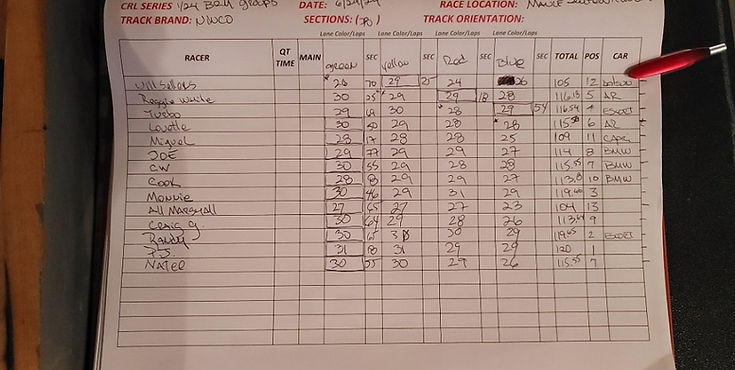 CRL SERIES 1/24 Groups DATE: 6/24/24 RACE LOCATION:
TRACK BRAND: NWCO SECTIONS: (30) TRACK ORIENTATION:
Lane Color/Laps Lane Color/Laps Lane Color/Laps Lane Color/Laps
RACER QT TIME MAIN green SEC yellow SEC Red SEC Blue SEC TOTAL POS CAR
Will Sellers 26 70 29 25 24 26 105 12
Reggie White 30 25 29 29 18 28 116.18 5 AR
Turbo 29 30 28 29 54 116.54 4 Escort
30 50 29 28 28 6
Miguel 28 17 28 28 25 109 11 CAPri
JOE 29 77 29 29 27 114 8 BMW
CW 30 55 29 28 28 115.55 7 BMW
Cook 28 8 29 29 27 113.8 10 BMW
Monnie 30 46 29 31 29 3
All MARSHALL 27 65 27 27 23 104 13
Craig g. 30 64 29 28 26 113.64 9
Randy 30 65 30 29 119.65 2 Escort
P.J. 31 8 31 29 29 120 1
NATEE 30 55 30 29 26 115.55 7